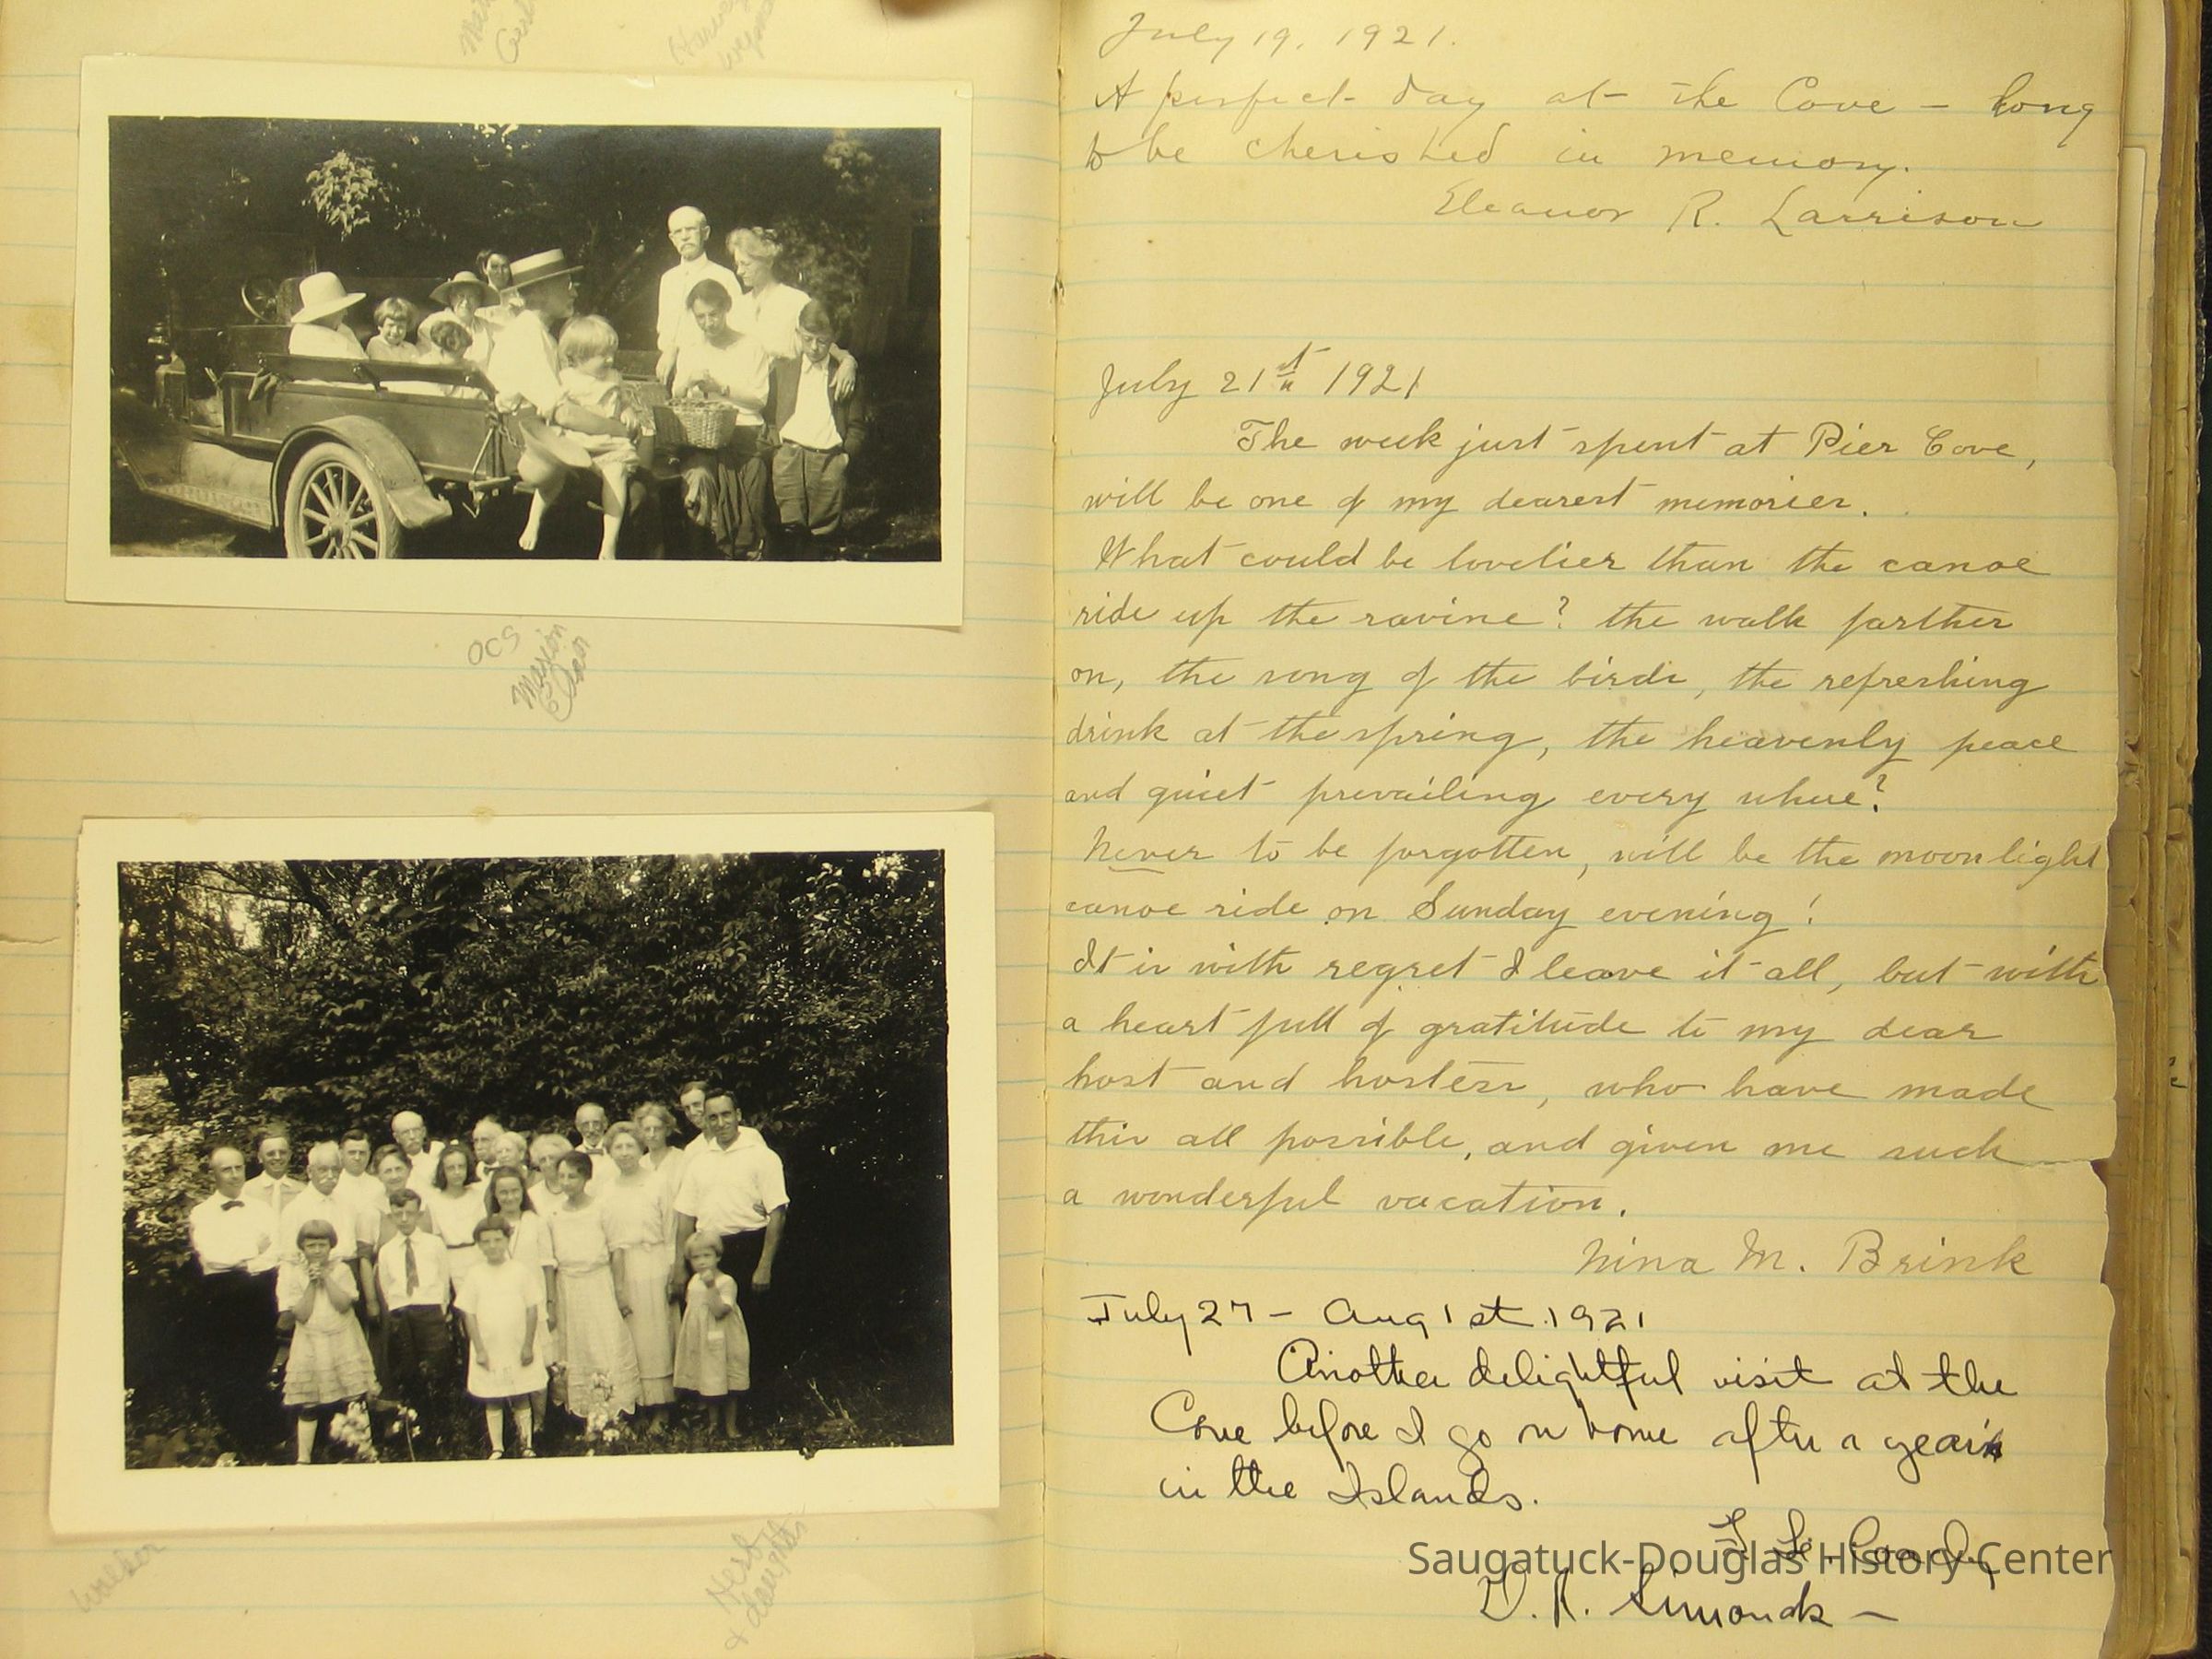 Harvey
OCS
Marion
Eleanor
Walker
Herb H
& daughter
July 19, 1921.
A perfect day at the Cove – long
to be cherished in memory.
Eleanor R. Larrison
July 21st 1921
The week just spent at Pier Cove,
will be one of my dearest memories.
What could be lovelier than the canoe
ride up the ravine? the walk farther
on, the song of the birds, the refreshing
drink at the spring, the heavenly peace
and quiet prevailing every where?
Never to be forgotten, will be the moonlight
canoe ride on Sunday evening!
It is with regret I leave it all, but with
a heart full of gratitude to my dear
host and hostess, who have made
this all possible, and given me such
a wonderful vacation.
Nina M. Brink
July 27 – Aug 1st. 1921
Another delightful visit at the
Cove before I go on home after a year
in the Islands.
Saugatuck-Douglas History Center
O. R. Simonds –